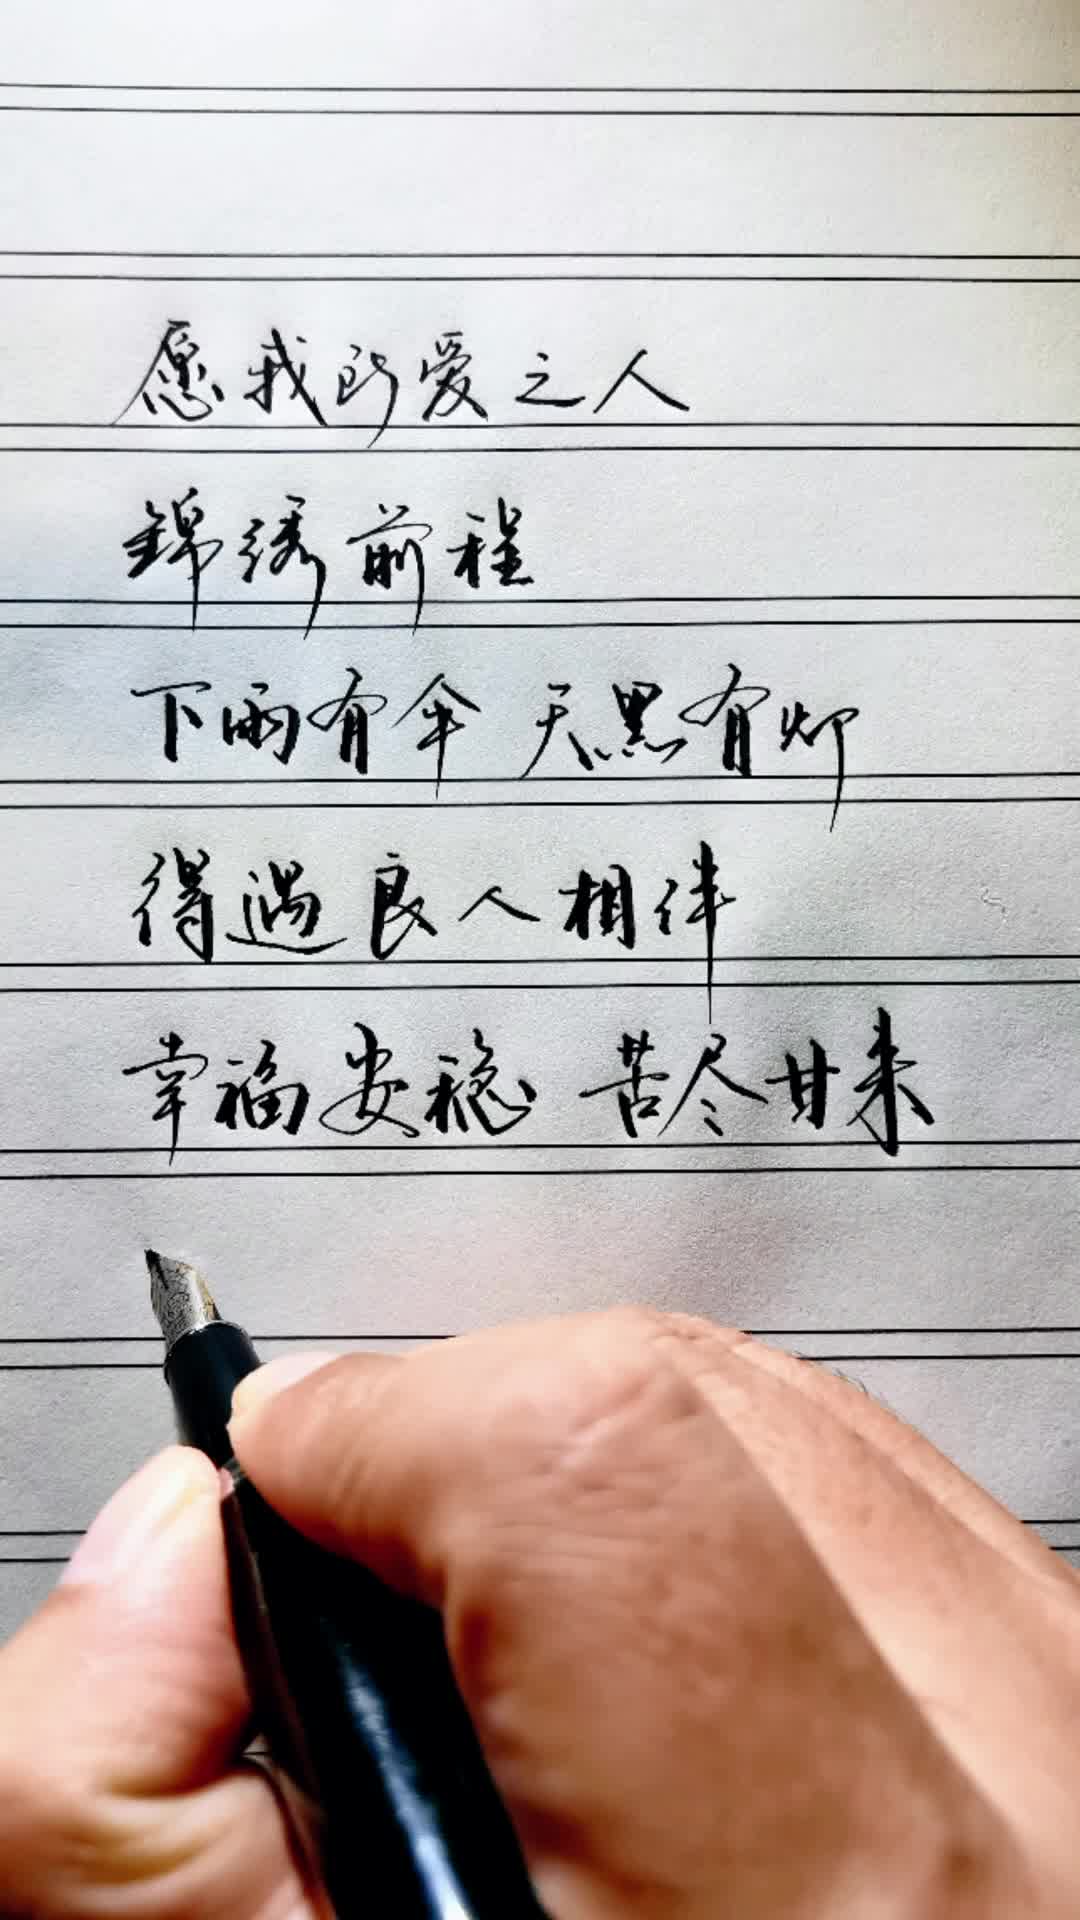 愿我所爱之人
錦绣前程
下雨有伞 天黑有灯
得遇良人相伴
幸福安稳 苦尽甘来